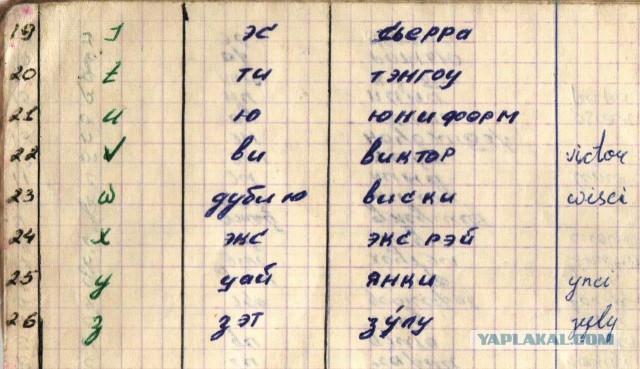 19 s эс сьерра
20 t ти тэнгоу
21 u ю юниформ
22 v ви виктор victor
23 w дублию виски wisci
24 x экс экс рэй
25 y уай янки ynci
26 z зэт зу́лу zyly
YAPLAKAL.COM